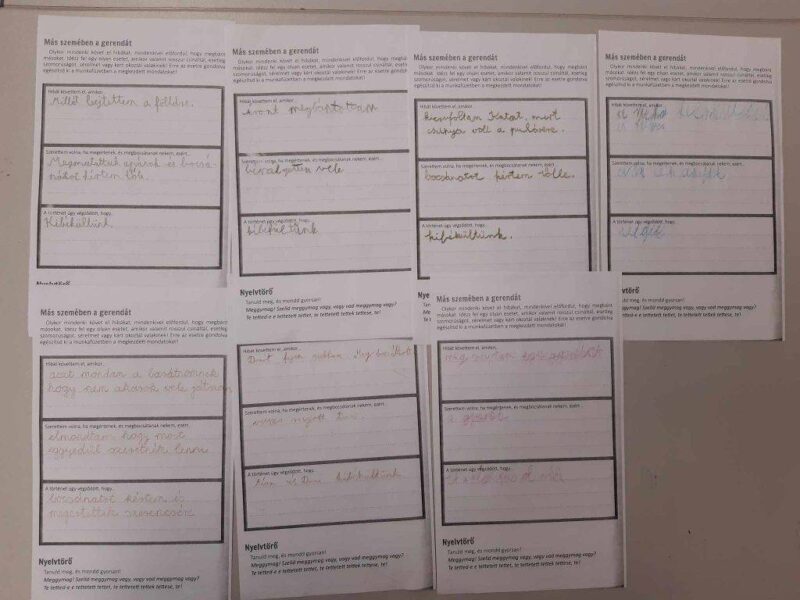 Más szemében a gerendát
Olykor mindenki követ el hibákat, mindenkivel előfordul, hogy megbánt
másokat. Idézz fel egy olyan esetet, amikor valamit rosszul csináltál, esetleg
szomorúságot, sérelmet vagy kárt okoztál valakinek! Erre az esetre gondolva
egészítsd ki a munkafüzetben a megkezdett mondatokat!
Hibát követtem el, amikor...
Millát lejtettem a földre.
Szerettem volna, ha megértenek, és megbocsátanak nekem, ezért...
bocsá-
nátot kértem tőle.
A történet úgy végződött, hogy...
Kibékültünk.
Más szemében a gerendát
Olykor mindenki követ el hibákat, mindenkivel előfordul, hogy megbánt
másokat. Idézz fel egy olyan esetet, amikor valamit rosszul csináltál, esetleg
szomorúságot, sérelmet vagy kárt okoztál valakinek! Erre az esetre gondolva
egészítsd ki a munkafüzetben a megkezdett mondatokat!
Hibát követtem el, amikor...
Áront megbántottam
Szerettem volna, ha megértenek, és megbocsátanak nekem, ezért...
beszélgettem vele
A történet úgy végződött, hogy...
kibékültünk
Nyelvtörő
Tanuld meg, és mondd gyorsan!
Meggymag! Szelíd meggymag vagy, vagy vad meggymag vagy?
Te tetted-e e tettetett tettet, te tettetett tettek tettese, te!
Más szemében a gerendát
Olykor mindenki követ el hibákat, mindenkivel előfordul, hogy megbánt
másokat. Idézz fel egy olyan esetet, amikor valamit rosszul csináltál, esetleg
szomorúságot, sérelmet vagy kárt okoztál valakinek! Erre az esetre gondolva
egészítsd ki a munkafüzetben a megkezdett mondatokat!
Hibát követtem el, amikor...
kicsufoltam Katát, mert
csúnya volt a pulóvere.
Szerettem volna, ha megértenek, és megbocsátanak nekem, ezért...
bocsánatot kértem tölle.
A történet úgy végződött, hogy...
kibékültünk.
Más szemében a gerendát
Olykor mindenki követ el hibákat, mindenkivel előfordul, hogy megbánt
másokat. Idézz fel egy olyan esetet, amikor valamit rosszul csináltál, esetleg
szomorúságot, sérelmet vagy kárt okoztál valakinek! Erre az esetre gondolva
egészítsd ki a munkafüzetben a megkezdett mondatokat!
Hibát követtem el, amikor...
Szerettem volna, ha megértenek, és megbocsátanak nekem, ezért...
A történet úgy végződött, hogy...
Nyelvtörő
Tanuld meg, és mondd gyorsan!
Meggymag! Szelíd meggymag vagy, vagy vad meggymag vagy?
Te tetted-e e tettetett tettet, te tettetett tettek tettese, te!
Más szemében a gerendát
Olykor mindenki követ el hibákat, mindenkivel előfordul, hogy megbánt
másokat. Idézz fel egy olyan esetet, amikor valamit rosszul csináltál, esetleg
szomorúságot, sérelmet vagy kárt okoztál valakinek! Erre az esetre gondolva
egészítsd ki a munkafüzetben a megkezdett mondatokat!
Hibát követtem el, amikor...
azt mondtam a barátomnak
hogy nem akarok vele játszani
Szerettem volna, ha megértenek, és megbocsátanak nekem, ezért...
elmondtam, hogy most
egyedül szeretnék lenni
A történet úgy végződött, hogy...
bocsánatot kértem és
megértették szerencsére
Nyelvtörő
Tanuld meg, és mondd gyorsan!
Meggymag! Szelíd meggymag vagy, vagy vad meggymag vagy?
Te tetted-e e tettetett tettet, te tettetett tettek tettese, te!
Hibát követtem el, amikor...
Szerettem volna, ha megértenek, és megbocsátanak nekem, ezért...
A történet úgy végződött, hogy...
kibékültünk
Nyelvtörő
Tanuld meg, és mondd gyorsan!
Meggymag! Szelíd meggymag vagy, vagy vad meggymag vagy?
Te tetted-e e tettetett tettet, te tettetett tettek tettese, te!
Más szemében a gerendát
Olykor mindenki követ el hibákat, mindenkivel előfordul, hogy megbánt
másokat. Idézz fel egy olyan esetet, amikor valamit rosszul csináltál, esetleg
szomorúságot, sérelmet vagy kárt okoztál valakinek! Erre az esetre gondolva
egészítsd ki a munkafüzetben a megkezdett mondatokat!
Hibát követtem el, amikor...
Szerettem volna, ha megértenek, és megbocsátanak nekem, ezért...
A történet úgy végződött, hogy...
Nyelvtörő
Tanuld meg, és mondd gyorsan!
Meggymag! Szelíd meggymag vagy, vagy vad meggymag vagy?
Te tetted-e e tettetett tettet, te tettetett tettek tettese, te!